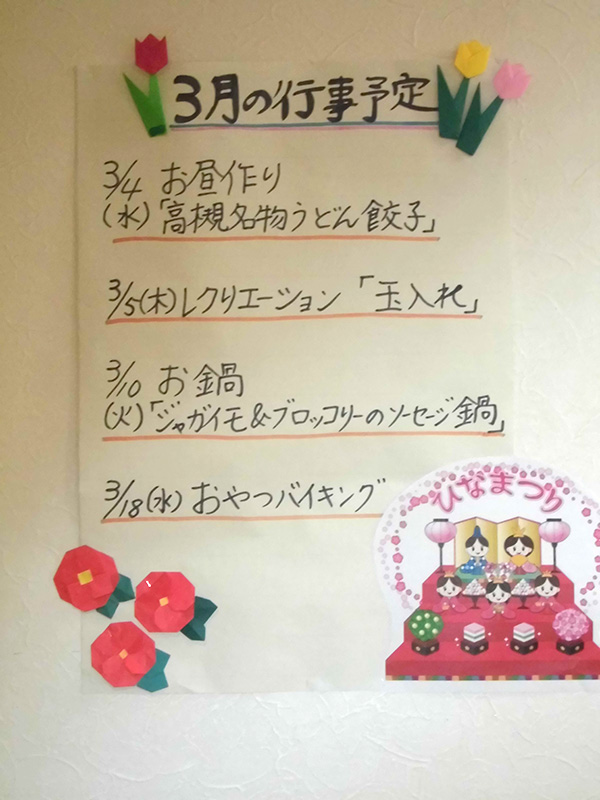 3月の行事予定
3/4 お昼作り
(水)「高槻名物うどん餃子」
3/5(木)レクリエーション「玉入れ」
3/10 お鍋
(火)「ジャガイモ&ブロッコリーのソーセージ鍋」
3/18(水)おやつバイキング
ひなまつり